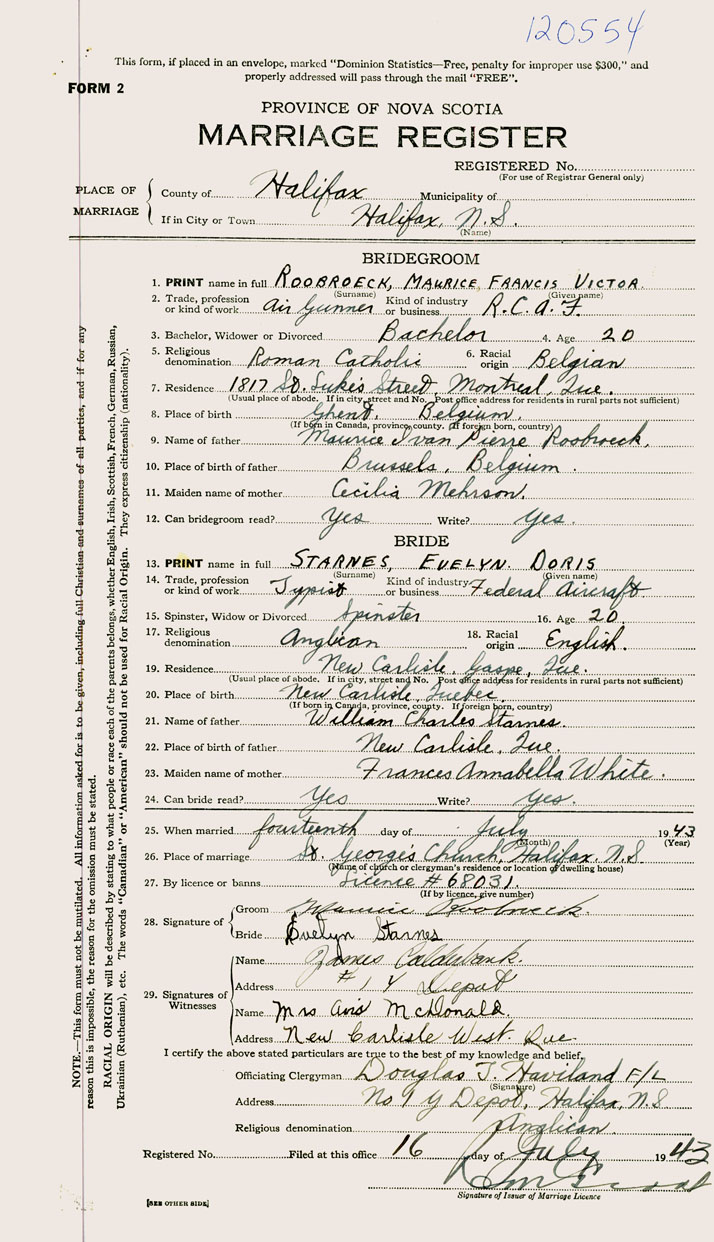 120554
This form, if placed in an envelope, marked "Dominion Statistics—Free, penalty for improper use $300," and
properly addressed will pass through the mail "FREE".
FORM 2
PROVINCE OF NOVA SCOTIA
MARRIAGE REGISTER
REGISTERED No.
(For use of Registrar General only)
PLACE OF MARRIAGE
County of Halifax Municipality of
If in City or Town Halifax, N.S.
(Name)
BRIDEGROOM
1. PRINT name in full ROOBROECK, MAURICE FRANCIS VICTOR
(Surname) (Given name)
2. Trade, profession or kind of work Air Gunner Kind of industry or business R.C.A.F.
3. Bachelor, Widower or Divorced Bachelor 4. Age 20
5. Religious denomination Roman Catholic 6. Racial origin Belgian
7. Residence 1817 St. Luke's Street, Montreal, Que.
(Usual place of abode. If in city, street and No. Post office address for residents in rural parts not sufficient)
8. Place of birth Ghent, Belgium.
(If born in Canada, province, county. If foreign born, country)
9. Name of father Maurice Ivan Pierre Roobroeck,
10. Place of birth of father Brussels, Belgium.
11. Maiden name of mother Cecilia Mehrson.
12. Can bridegroom read? Yes Write? Yes.
BRIDE
13. PRINT name in full STARNES, EVELYN. DORIS
(Surname) (Given name)
14. Trade, profession or kind of work Typist Kind of industry or business Federal Aircraft
15. Spinster, Widow or Divorced Spinster 16. Age 20.
17. Religious denomination Anglican 18. Racial origin English.
19. Residence New Carlisle, Gaspe, Que.
(Usual place of abode. If in city, street and No. Post office address for residents in rural parts not sufficient)
20. Place of birth New Carlisle, Quebec.
(If born in Canada, province, county. If foreign born, country)
21. Name of father William Charles Starnes.
22. Place of birth of father New Carlisle, Que.
23. Maiden name of mother Frances Annabella White.
24. Can bride read? Yes Write? Yes.
25. When married fourteenth day of July 1943
(Month) (Year)
26. Place of marriage St. George's Church, Halifax. N.S
(Name of church or clergyman's residence or location of dwelling house)
27. By licence or banns Licence # 68031.
(If by licence, give number)
28. Signature of
Groom Maurice Roobroeck.
Bride Evelyn Starnes
29. Signatures of Witnesses
Name James
Address # 1 Y Depot
Name Mrs Avis McDonald.
Address New Carlisle West. Que.
I certify the above stated particulars are true to the best of my knowledge and belief.
Officiating Clergyman Douglas T. Haviland F/L
(Signature)
Address No 1 Y Depot, Halifax, N.S
Religious denomination Anglican.
Registered No. Filed at this office 16 day of July 1943
Signature of Issuer of Marriage Licence
[SEE OTHER SIDE]
NOTE.—This form must not be mutilated. All information asked for is to be given, including full Christian and surnames of all parties, and if for any
reason this is impossible, the reason for the omission must be stated.
RACIAL ORIGIN will be described by stating to what people or race each of the parents belongs, whether English, Irish, Scottish, French, German, Russian,
Ukrainian (Ruthenian), etc. The words "Canadian" or "American" should not be used for Racial Origin. They express citizenship (nationality).